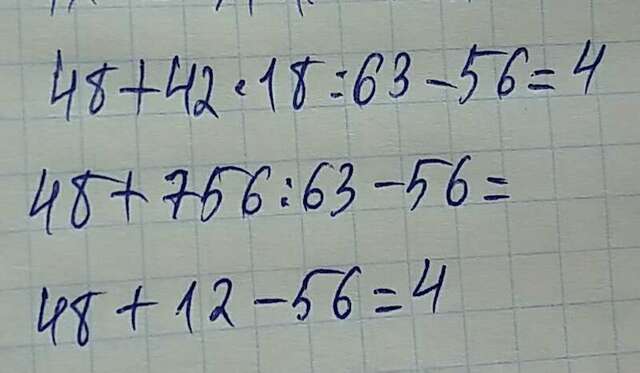 48+42·18:63-56=4
48+756:63-56=
48+12-56=4